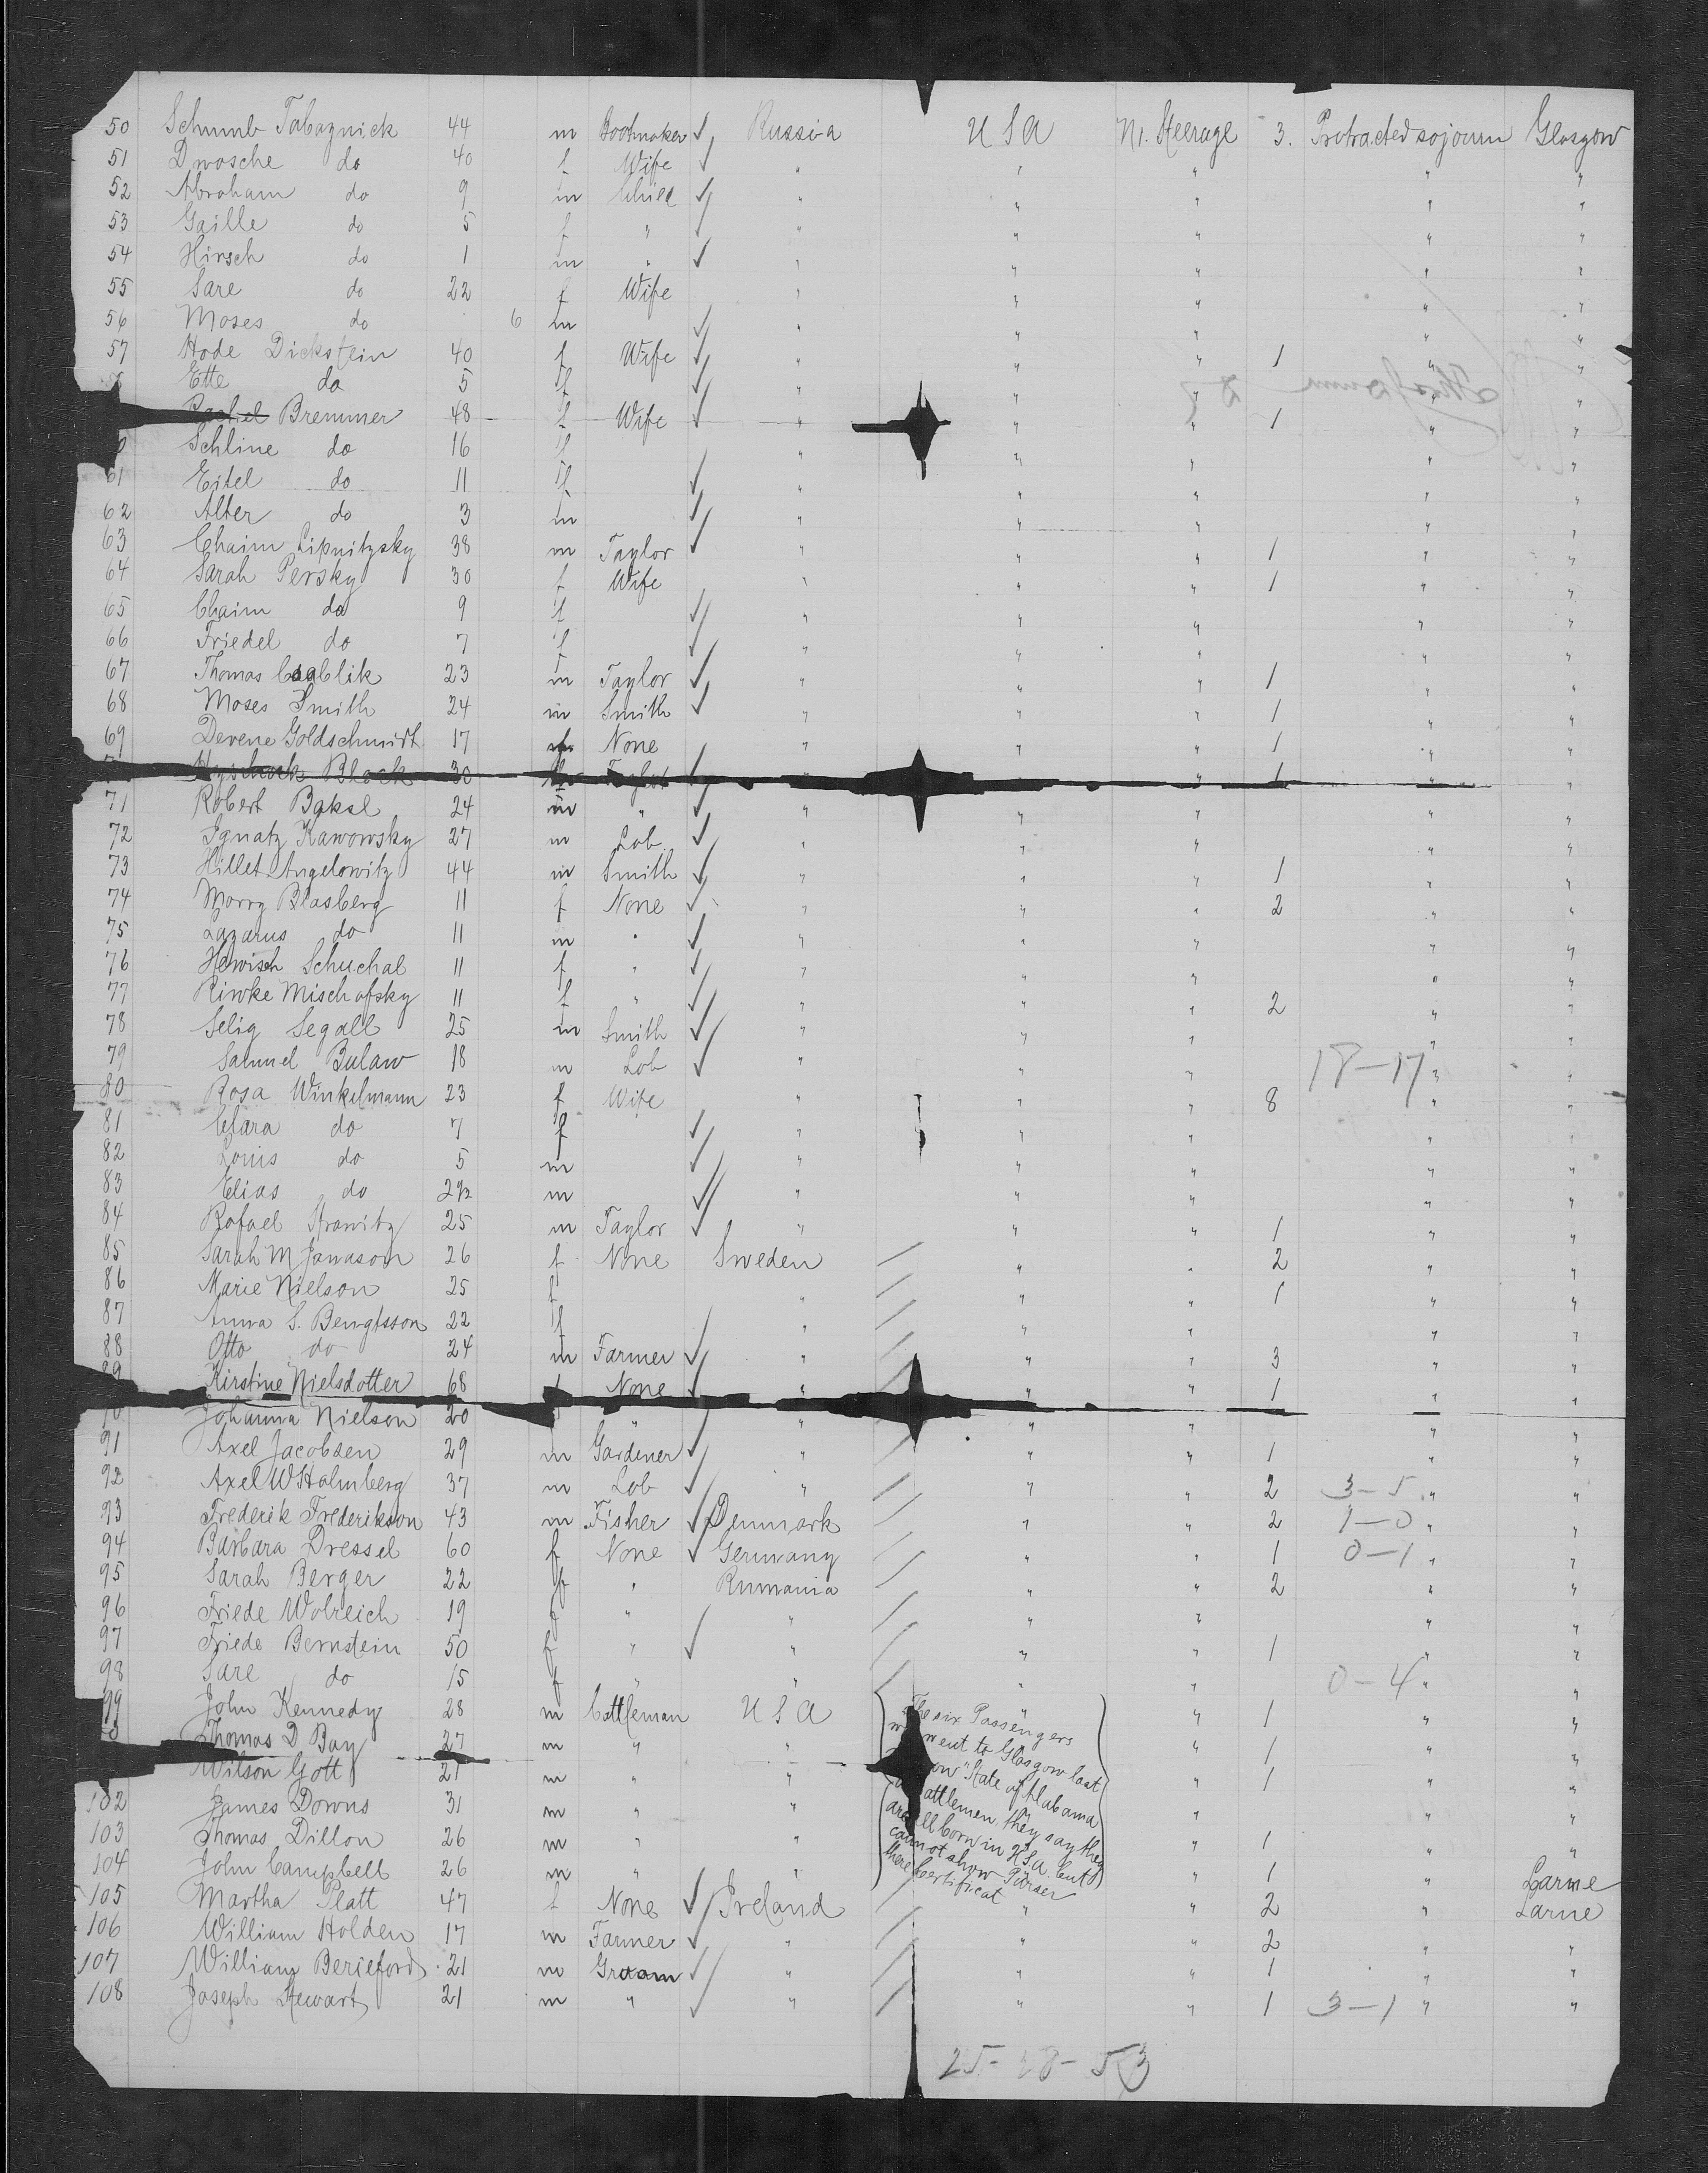 50 Schumb Tabaznick 44 m Bootmaker Russia USA N1. Steerage 3. Protracted sojourn Glasgow
51 Dwosche do 40 f Wife " " " " "
52 Abraham do 9 m Child " " " " "
53 Gaille do 5 f " " " " " "
54 Hirsch do 1 m " " " " " "
55 Sare do 22 f Wife " " " " "
56 Moses do 6 m " " " " "
57 Hode Dickstein 40 f Wife " " " 1 " "
Ette do 5 f " " " " "
Rachel Bremmer 48 f Wife " " " 1 " "
Schline do 16 f " " " " "
61 Eitel do 11 f " " " " "
62 Alter do 3 m " " " " "
63 Chaim Lipnitzsky 38 m Taylor " " " 1 " "
64 Sarah Persky 30 f Wife " " " 1 " "
65 Chaim do 9 f " " " " "
66 Friedel do 7 f " " " " "
67 Thomas 23 m Taylor " " " 1 " "
68 Moses Smith 24 m Smith " " " 1 " "
69 Devene Goldschmidt 17 f None " " " 1 " "
Black 30 " " " 1 " "
71 Robert Baksl 24 m " " " " " "
72 Ignatz Kawowsky 27 m Lab. " " " " "
73 Hillet Angelowitz 44 m Smith " " " 1 " "
74 Morry Blasberg 11 f None " " " 2 " "
75 Lazarus do 11 m " " " " " "
76 Hewisch Schuchal 11 f " " " " " "
77 Riwke Mischofsky 11 f " " " " 2 " "
78 Selig Segall 25 m Smith " " " " "
79 Samuel Bulaw 18 m Lab " " " 18-17 " "
80 Rosa Winkelmann 23 f Wife " " " 8 " "
81 Clara do 7 f " " " " "
82 Louis do 5 m " " " " "
83 Elias do 2 1/2 m " " " " "
84 Rafael Strawitz 25 m Taylor " " " 1 " "
85 Sarah M Janason 26 f None Sweden " " 2 " "
86 Marie Nielson 25 f " " " 1 " "
87 Anna S. Bengtsson 22 f " " " " "
88 Otto do 24 m Farmer " " " 3 " "
89 Kirstine Nielsdotter 68 None " " " 1 " "
Johanna Nielson 20 " " " " " "
91 Axel Jacobsen 29 m Gardener " " " 1 " "
92 Axel W Holmberg 37 m Lab " " " 2 3-5 " "
93 Frederik Frederikson 43 m Fisher Denmark " " 2 1-0 " "
94 Barbara Dressel 60 f None Germany " " 1 0-1 " "
95 Sarah Berger 22 f " Rumania " " 2 " "
96 Friede Wolreich 19 f " " " " " "
97 Friede Bernstein 50 f " " " " 1 " "
98 Sare do 15 f " " " " 0-4 " "
99 John Kennedy 28 m Cattleman USA " " 1 " "
Thomas D Bay 27 m " " " 1 " "
Wilson Gott 21 m " " " 1 " "
102 James Downs 31 m " " " " "
103 Thomas Dillon 26 m " " " 1 " "
104 John Campbell 26 m " " " 1 " Larne
The six Passengers
went to Glasgow last
"State of Alabama"
cattlemen, they say they
are all born in U.S.A. but
cannot show Purser
there Certificat
105 Martha Platt 47 f None Ireland " " 2 " Larne
106 William Holden 17 m Farmer " " " 2 " "
107 William Berieford 21 m Groom " " " 1 " "
108 Joseph Stewart 21 m " " " " 1 3-1 " "
25-28-53